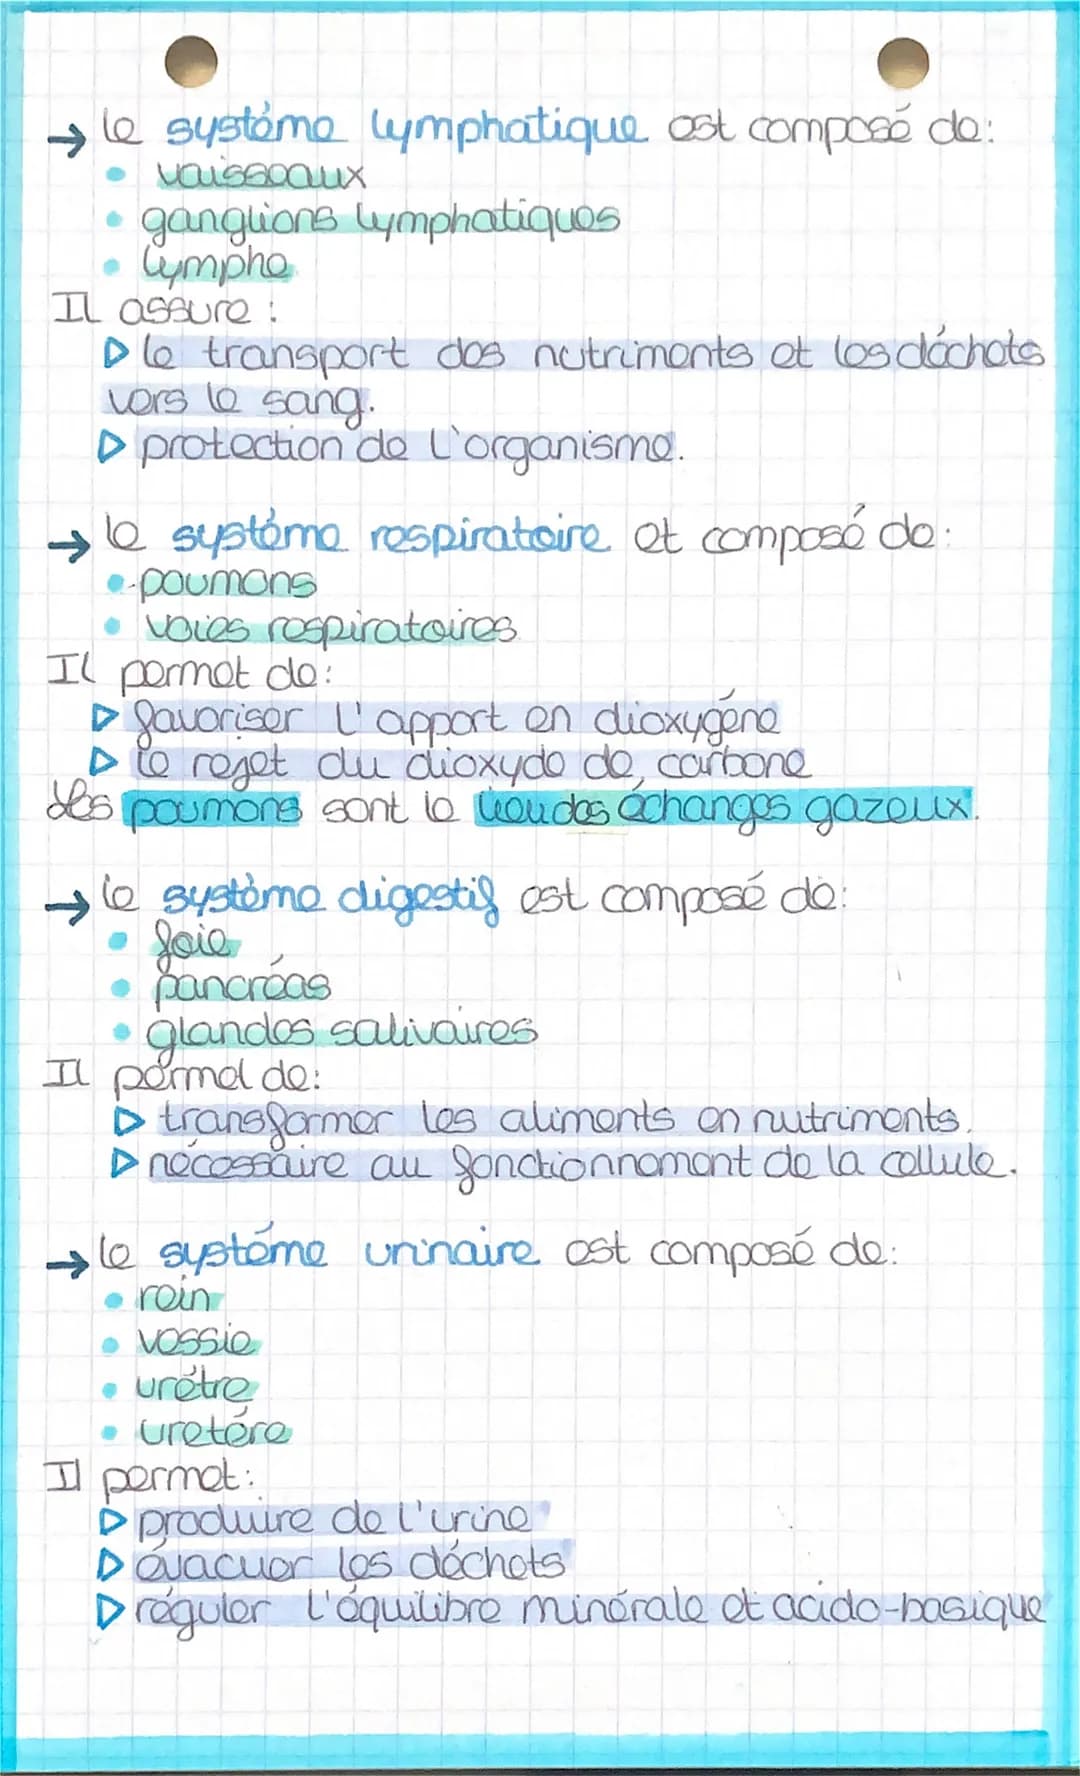 → le système lymphatique est composé de:
• vaisseaux
• ganglions lymphatiques
• lymphe
Il assure :
▷ le transport des nutriments et les déchets
vers le sang.
▷ protection de l'organisme.
→ le système respiratoire et composé de:
• poumons
• voies respiratoires
Il permet de:
▷ favoriser l'apport en dioxygène
▷ le rejet du dioxyde de carbone
Les poumons sont le lieu des échanges gazeux.
→ le système digestif est composé de:
• foie
• pancréas
• glandes salivaires
Il permet de:
▷ transformer les aliments en nutriments.
▷ nécessaire au fonctionnement de la cellule.
→ le système urinaire est composé de:
• rein
• vessie
• urètre
• uretère
Il permet:
▷ produire de l'urine
▷ évacuer les déchets
▷ réguler l'équilibre minérale et acido-basique